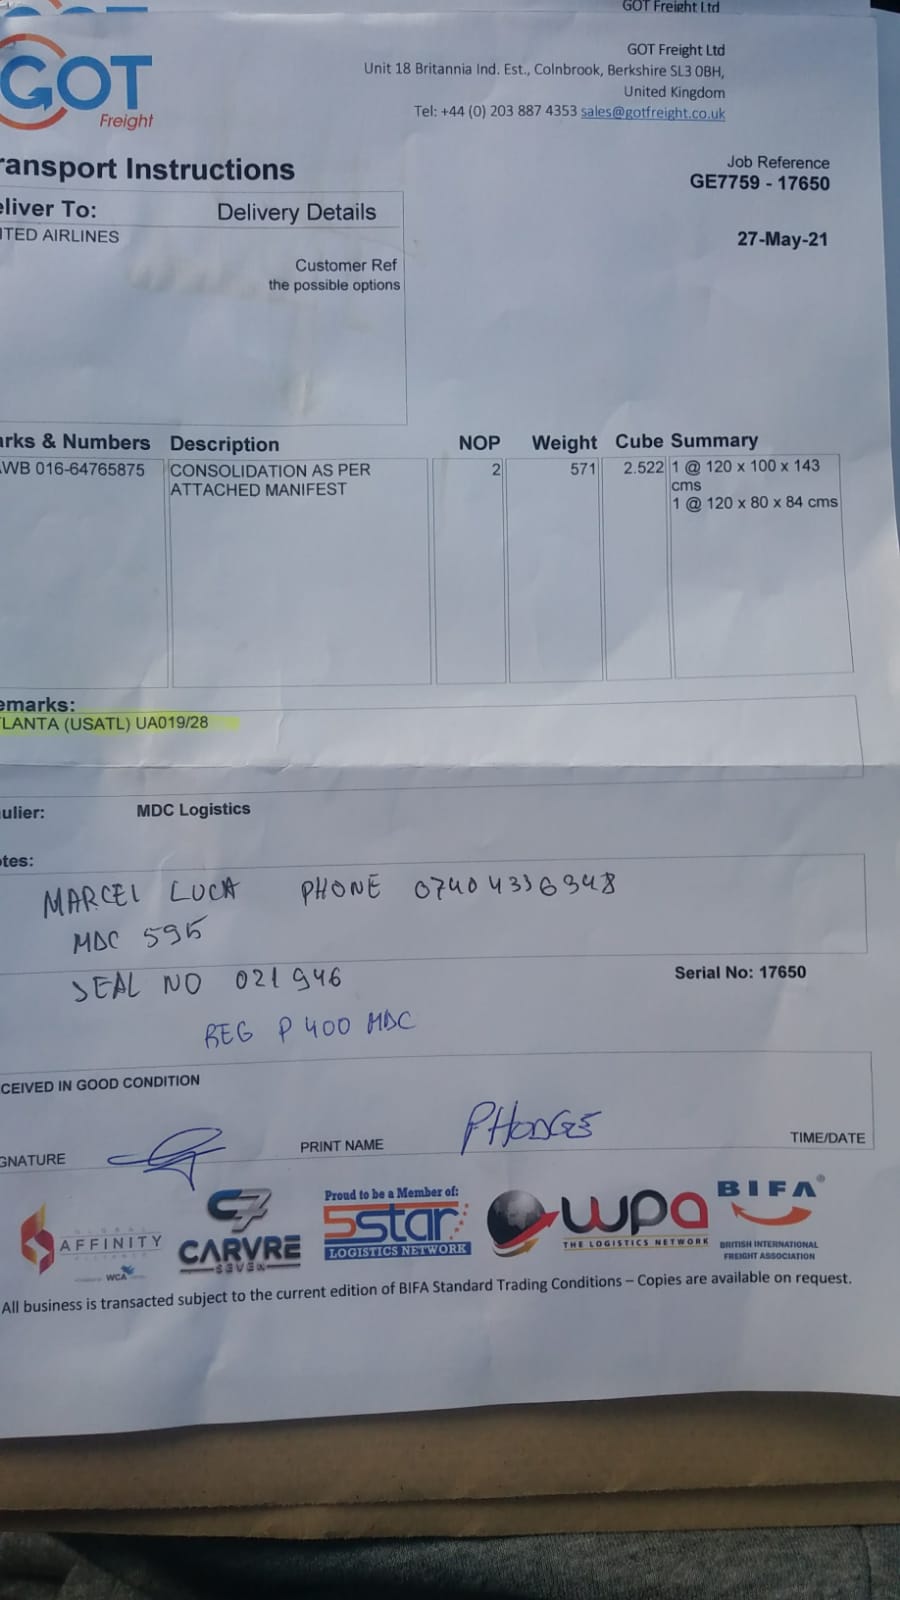 GOT Freight Ltd
GOT
Freight
GOT Freight Ltd
Unit 18 Britannia Ind. Est., Colnbrook, Berkshire SL3 0BH,
United Kingdom
Tel: +44 (0) 203 887 4353 sales@gotfreight.co.uk
ransport Instructions
Job Reference
GE7759 - 17650
27-May-21
eliver To: Delivery Details
ITED AIRLINES
Customer Ref
the possible options
arks & Numbers Description NOP Weight Cube Summary
AWB 016-64765875 CONSOLIDATION AS PER 2 571 2.522 1 @ 120 x 100 x 143
ATTACHED MANIFEST cms
1 @ 120 x 80 x 84 cms
emarks:
TLANTA (USATL) UA019/28
ulier: MDC Logistics
otes:
MARCEL LUCA PHONE 07404336348
MDC 595
SEAL NO 021946
Serial No: 17650
REG P400 MDC
CEIVED IN GOOD CONDITION
GNATURE PRINT NAME PHODGES TIME/DATE
GLOBAL
AFFINITY
WCA
C7
CARVRE
SEVEN
Proud to be a Member of:
5star
LOGISTICS NETWORK
wpa
THE LOGISTICS NETWORK
BIFA®
BRITISH INTERNATIONAL
FREIGHT ASSOCIATION
All business is transacted subject to the current edition of BIFA Standard Trading Conditions – Copies are available on request.